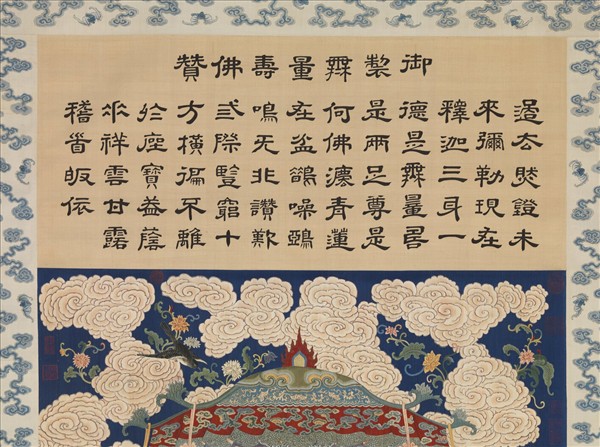 御製橆量壽佛贊
過去燃鐙未
來彌勒現在
釋迦三身一
德是橆量居
是兩足尊是
何佛灋青蓮
在盆鵲噪鵶
鳴无非讚歎
弎際豎窮十
方橫徧不離
於座寶蓋蔭
垂祥雲甘露
稽首皈依